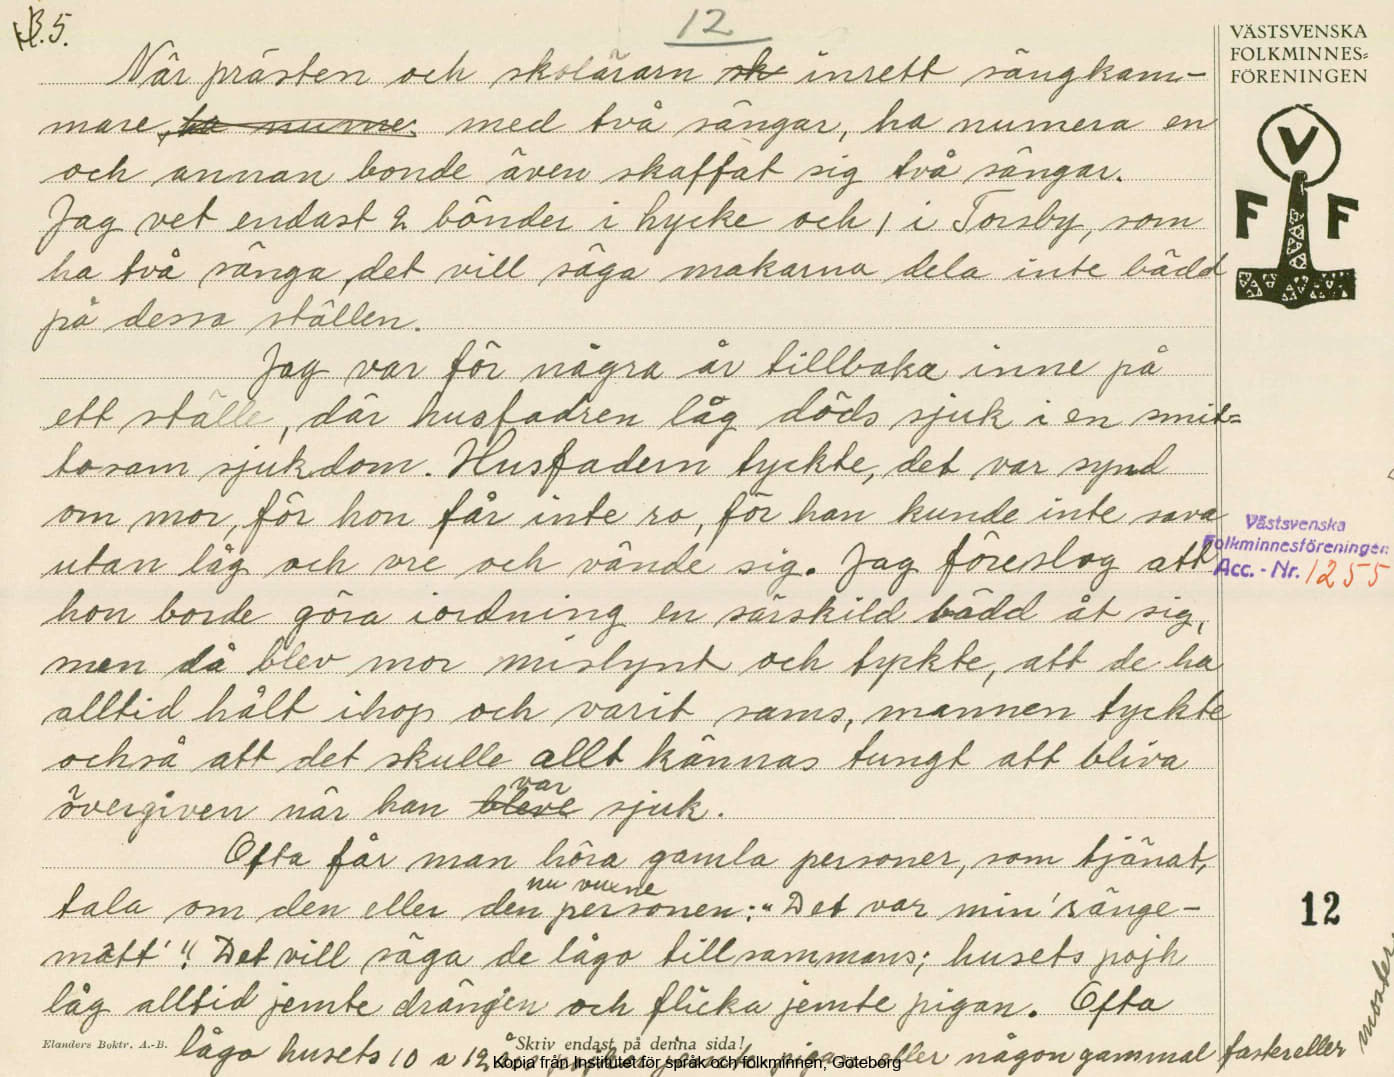 H.B.5.
12
När prästen och skolärarn sk inrett sängkam-
mare, ha nume. med två sängar, ha numera en
och annan bonde även skaffat sig två sängar.
Jag vet endast 2 bönder i hycke och 1 i Torsby, som
ha två sänga, det vill säga makarna dela inte bädd
på dessa ställen.
Jag var för några år tillbaka inne på
ett ställe, där husfadren låg döds sjuk i en smit=
tosam sjukdom. Husfadern tyckte, det var synd
om mor, för hon får inte ro, för han kunde inte sova
utan låg och vre och vände sig. Jag föreslog att
hon borde göra iordning en särskild bädd åt sig,
men då blev mor mislynt och tyckte, att de ha
alltid hålt ihop och varit sams, mannen tyckte
också att det skulle allt kännas tungt att bliva
övergiven när han bleve var sjuk.
Ofta får man höra gamla personer, som tjänat,
tala om den eller den nu vuxne personen: "Det var min 'sänge-
mätt'". Det vill säga de lågo tillsammans; husets pojk
låg alltid jemte drängen och flicka jemte pigan. Ofta
lågo husets 10 a 12 års pojkar jemte pigan eller någon gammal faster eller
moster
VÄSTSVENSKA
FOLKMINNES=
FÖRENINGEN
V
F F
Västsvenska
Folkminnesföreningen
Acc. - Nr. 1255
12
Elanders Boktr. A.-B.
Skriv endast på denna sida!
Kopia från Institutet för språk och folkminnen, Göteborg